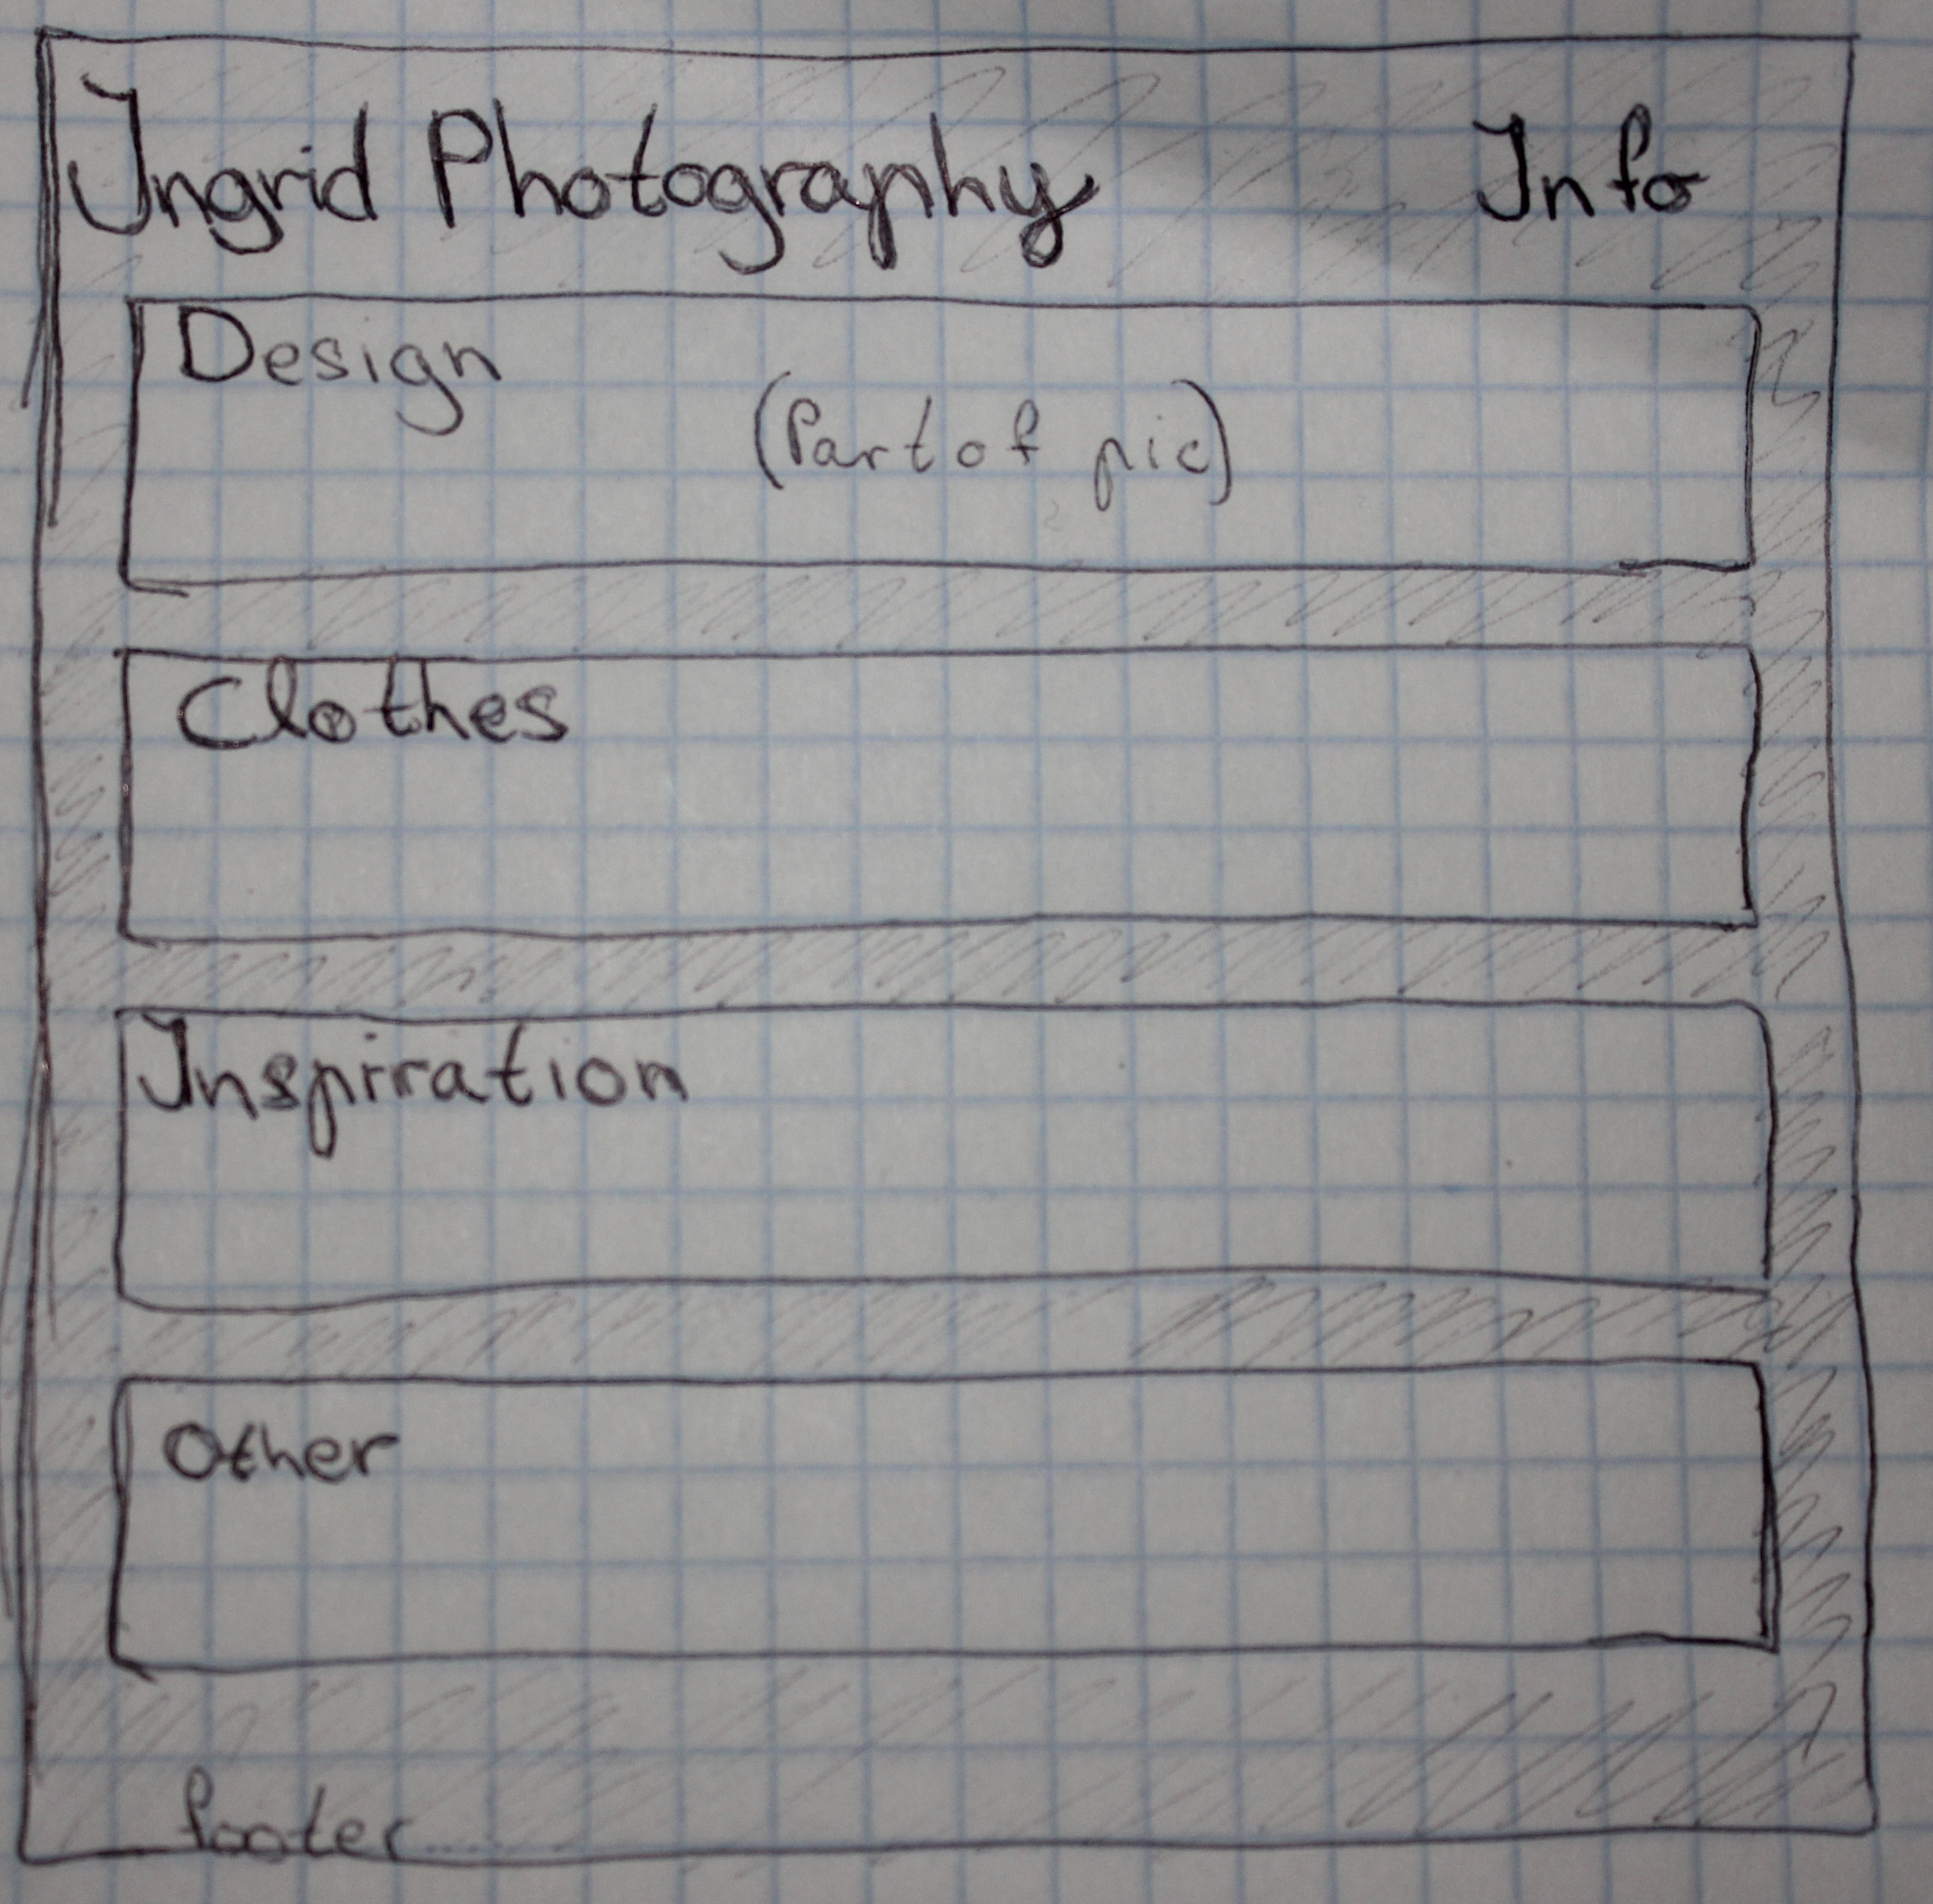 Ingrid Photography Info
Design
(Part of pic)
Clothes
Inspirration
Other
footer......